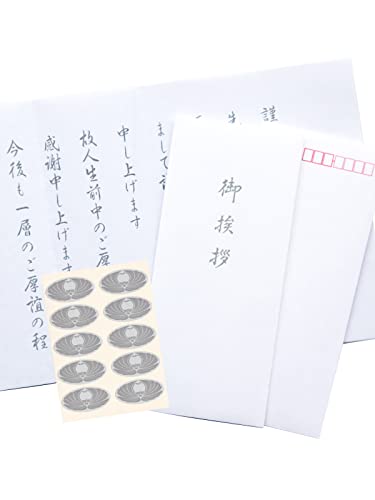 謹
まして
申し上げます
故人生前中のご
感謝申し上げます
今後も一層のご厚誼の程
御挨拶